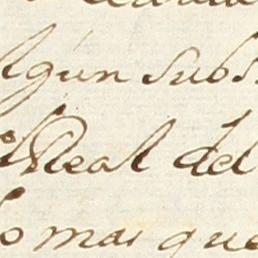 algun subs
Real del
lo mas que